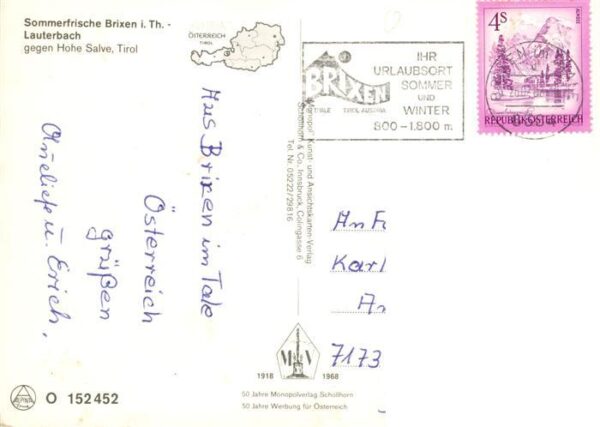 Sommerfrische Brixen i. Th. -
Lauterbach
gegen Hohe Salve, Tirol
ÖSTERREICH
TIROL
BRIXEN
IM THALE TIROL-AUSTRIA
IHR
URLAUBSORT
SOMMER
UND
WINTER
800 – 1.800 m
4 S
ALMSEE
REPUBLIK ÖSTERREICH
Aus Brixen im Tale
Österreich
grüßen
Aneliese u. Erich.
Monopol Kunst- und Ansichtskarten-Verlag
Schöllhorn & Co. Innsbruck, Colingasse 6
Tel. Nr. 05222/29816
An Fa
Karl
An
7173
MV
1918 1968
50 Jahre Monopolverlag Schöllhorn
50 Jahre Werbung für Österreich
O 152452